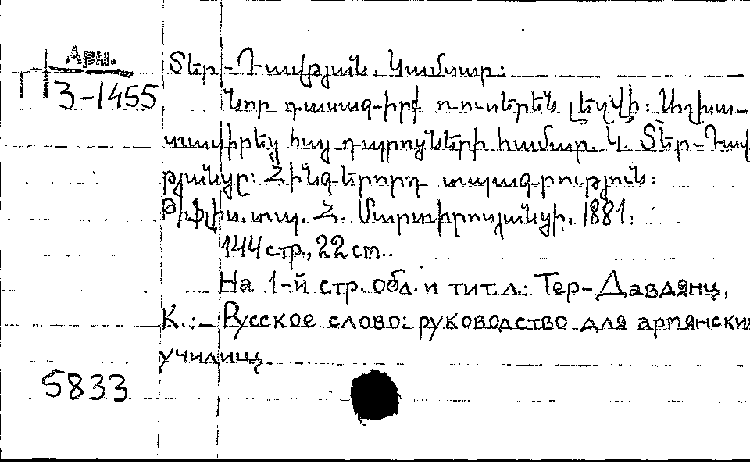 Арм.
3-1455
Տեր-Դավթյան, Կամսար:
Նոր դասագիրք ռուսերեն լեզվի: Աշխա-
տասիրեց հայ դպրոցների համար Կ. Տեր-Դավ
թյանցը: Հինգերորդ տպագրություն:
Թիֆլիս, տպ. Հ. Մարտիրոսյանցի, 1881.
144 стр., 22 cm.
На 1-й стр. обл. и тит.л.: Тер-Давдянц,
К.:- Русское слово: руководство для армянских
училищ.
5833